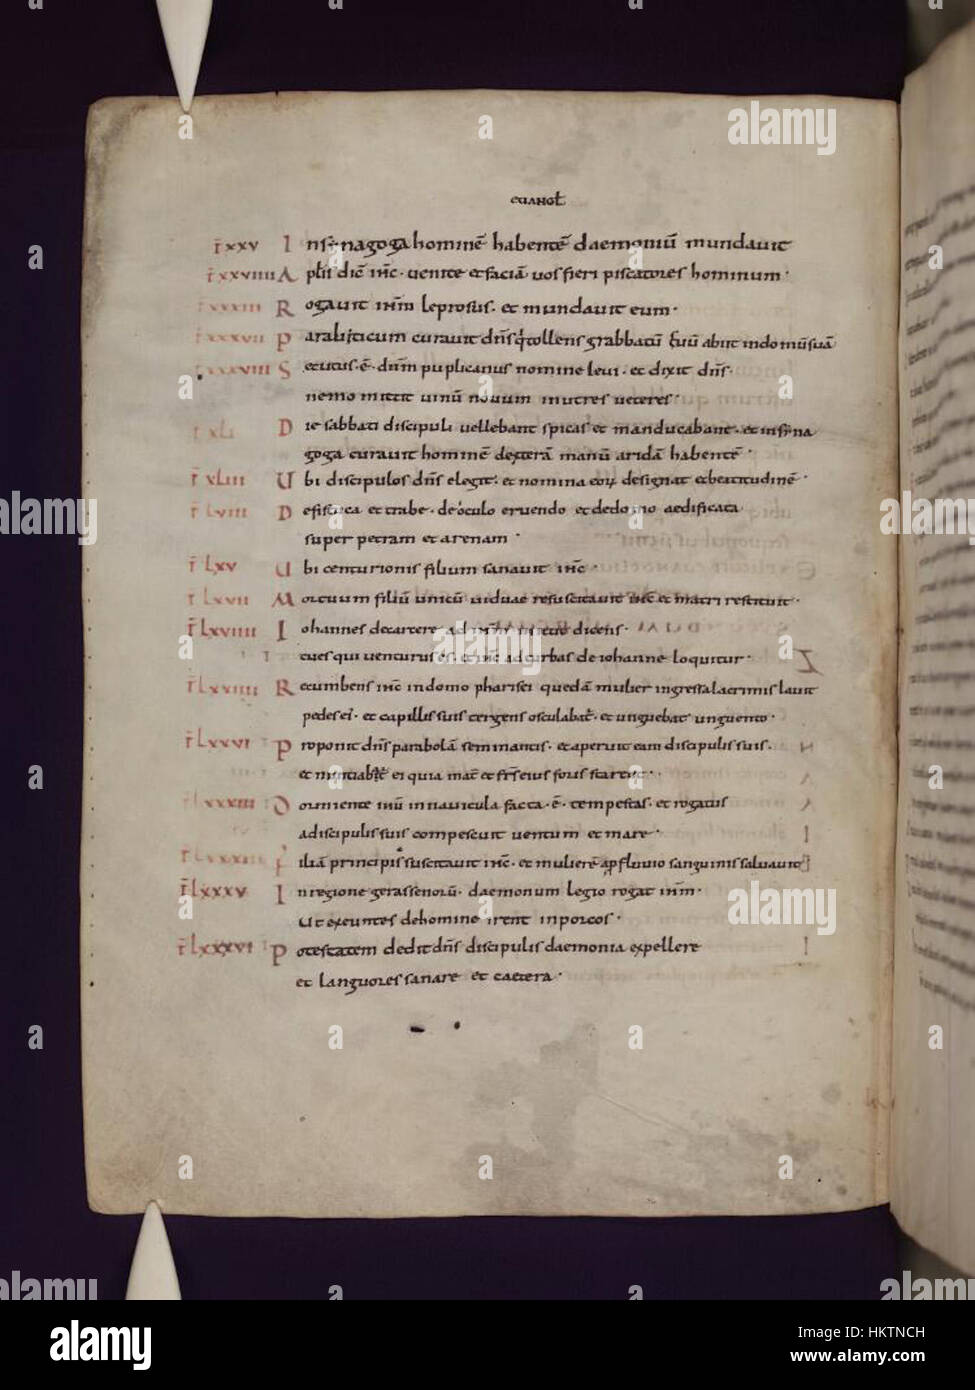 euangl̄
r̄xxv I nsynagoga hominē habentē daemoniū mundavit
r̄xxviiii A pl̄is dic̄ ih̄c · venite et faciā vos fieri piscatores hominum ·
r̄xxxiii R ogavit ih̄m leprosus · et mundavit eum ·
r̄xxxvii P araliticum curavit dn̄s tollens grabbatū suū abiit indomūsuā
r̄xxxviiii S ecutus · ē · dn̄m puplicanus nomine levi · et dixit dn̄s ·
nemo mittit vinū novum in utres veteres ·
r̄xli D ie sabbati discipuli vellebant spicas et manducabant · et insyna
goga curavit hominē dexterā manū aridā habentē ·
r̄ xliii U bi discipulos dn̄s elegit · et nomina eorum designat et beatitudinē ·
r̄ lviii D efistuca et trabe · de oculo eruendo et dedomo aedificata
super petram et arenam ·
r̄ lxv U bi centurionis filium sanavit ih̄c ·
r̄ lxvii M ortuum filiū unicū viduae resuscitavit ih̄c et matri restituit ·
r̄ lxviiii I ohannes decarcere ad ih̄m mittit dicens ·
tu es qui venturus es · et ih̄c ad turbas de iohanne loquitur ·
r̄lxxiiii R ecumbens ih̄c indomo pharisei quedā mulier ingressa lacrimis lavit
pedes ei · et capillis suis tergens osculabat̄ · et unguebat unguento ·
r̄ lxxvi P roponit dn̄s parabolā seminantis · et aperuit eam discipulis suis ·
et nuntiabat̄ ei quia mat̄ et fr̄s eius foris starent ·
r̄lxxxiii D ormiente ih̄u in navicula facta · ē · tempestas · et rogatus
adiscipulis suis compescuit ventum et mare ·
F iliā principis suscitavit ih̄c · et mulierē a profluvio sanguinis salvavit
r̄lxxxv I nregione gerassenorū · daemonum legio rogat ih̄m ·
Ut exeuntes dehomine irent inporcos ·
r̄lxxxvi P otestatem dedit dn̄s discipulis daemonia expellere
et languores sanare et caetera ·
alamy
Image ID: HKTNCH
www.alamy.com